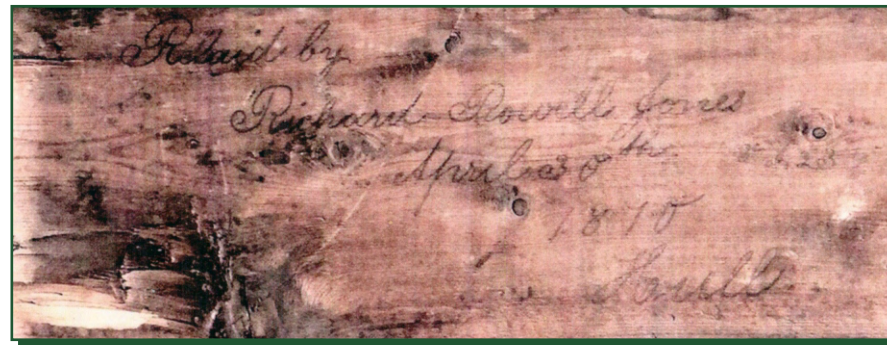 Relaid by
Richard Powell Jones
April 30th
1870